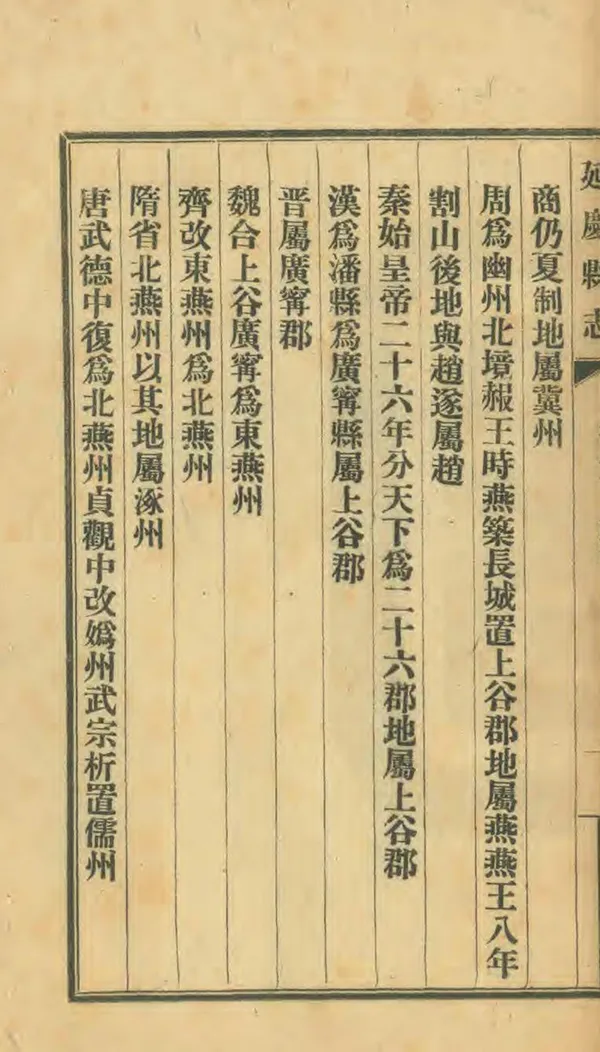 延慶縣志
商仍夏制地屬冀州
周爲幽州北境赧王時燕築長城置上谷郡地屬燕燕王八年
割山後地與趙遂屬趙
秦始皇帝二十六年分天下爲二十六郡地屬上谷郡
漢爲潘縣爲廣甯縣屬上谷郡
晋屬廣甯郡
魏合上谷廣甯爲東燕州
齊改東燕州爲北燕州
隋省北燕州以其地屬涿州
唐武德中復爲北燕州貞觀中改嬀州武宗析置儒州